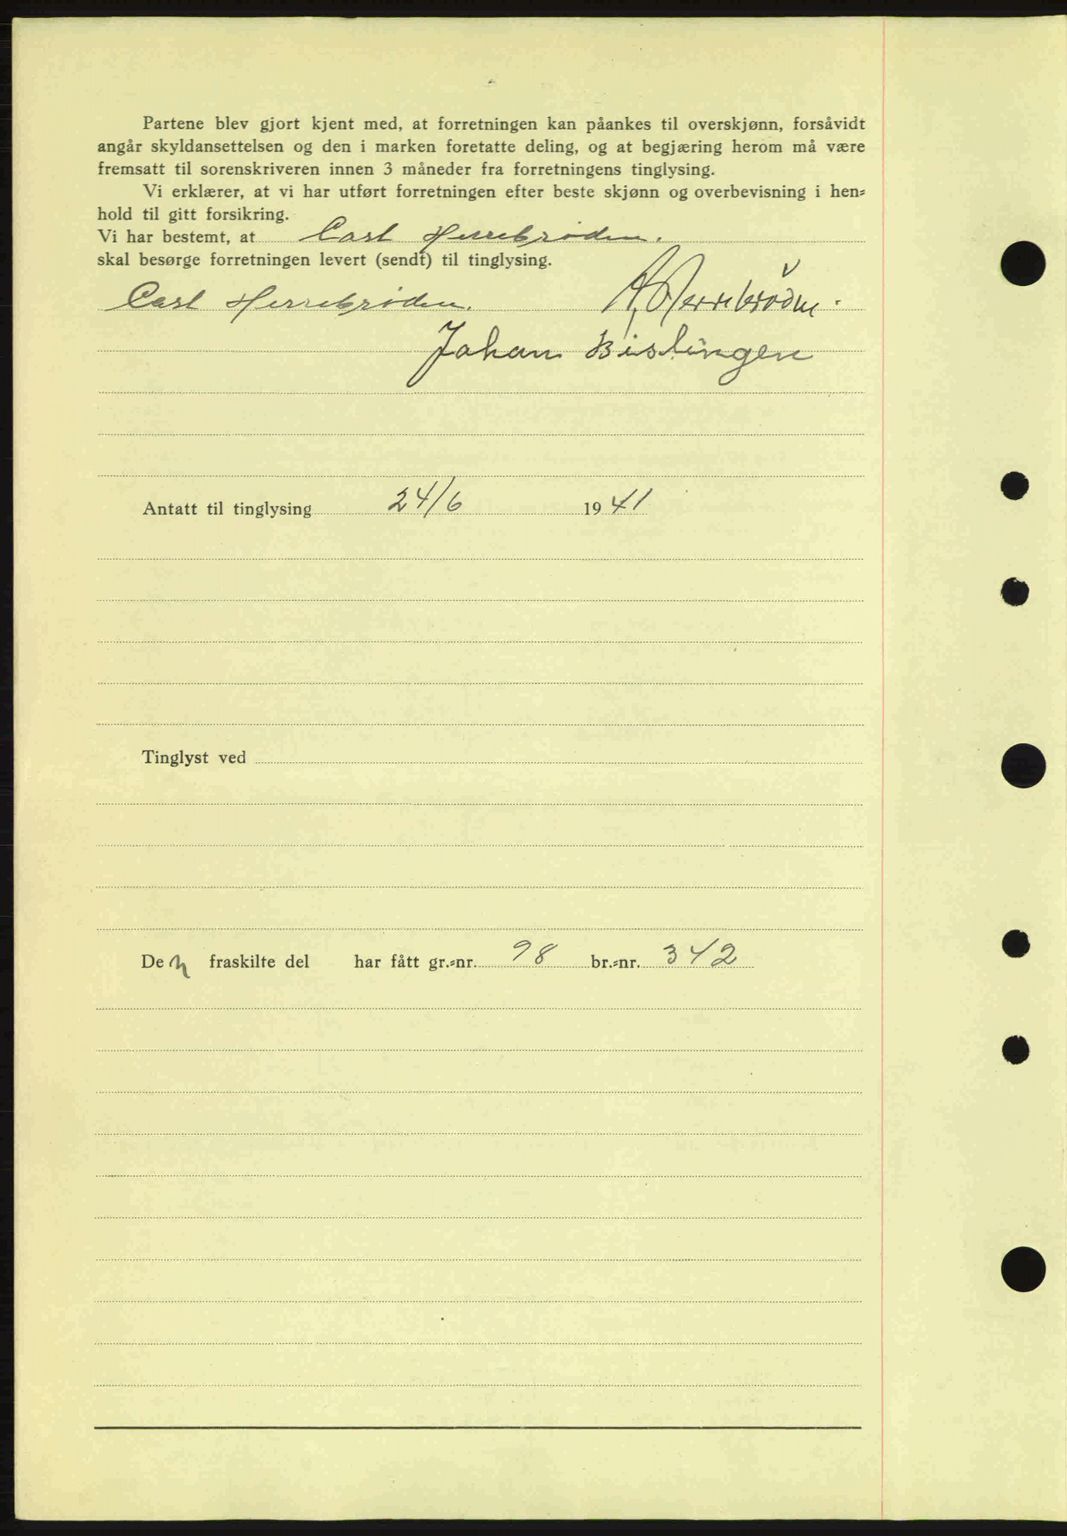 Partene blev gjort kjent med, at forretningen kan påankes til overskjønn, forsåvidt
angår skyldansettelsen og den i marken foretatte deling, og at begjæring herom må være
fremsatt til sorenskriveren innen 3 måneder fra forretningens tinglysing.
Vi erklærer, at vi har utført forretningen efter beste skjønn og overbevisning i hen=
hold til gitt forsikring.
Vi har bestemt, at Carl Herrebrøden.
skal besørge forretningen levert (sendt) til tinglysing.
Carl Herrebrøden. A. Herrebröden.
Johan Bislingen
Antatt til tinglysing 24/6 1941
Tinglyst ved
Den fraskilte del har fått gr.=nr. 98 br.=nr. 342